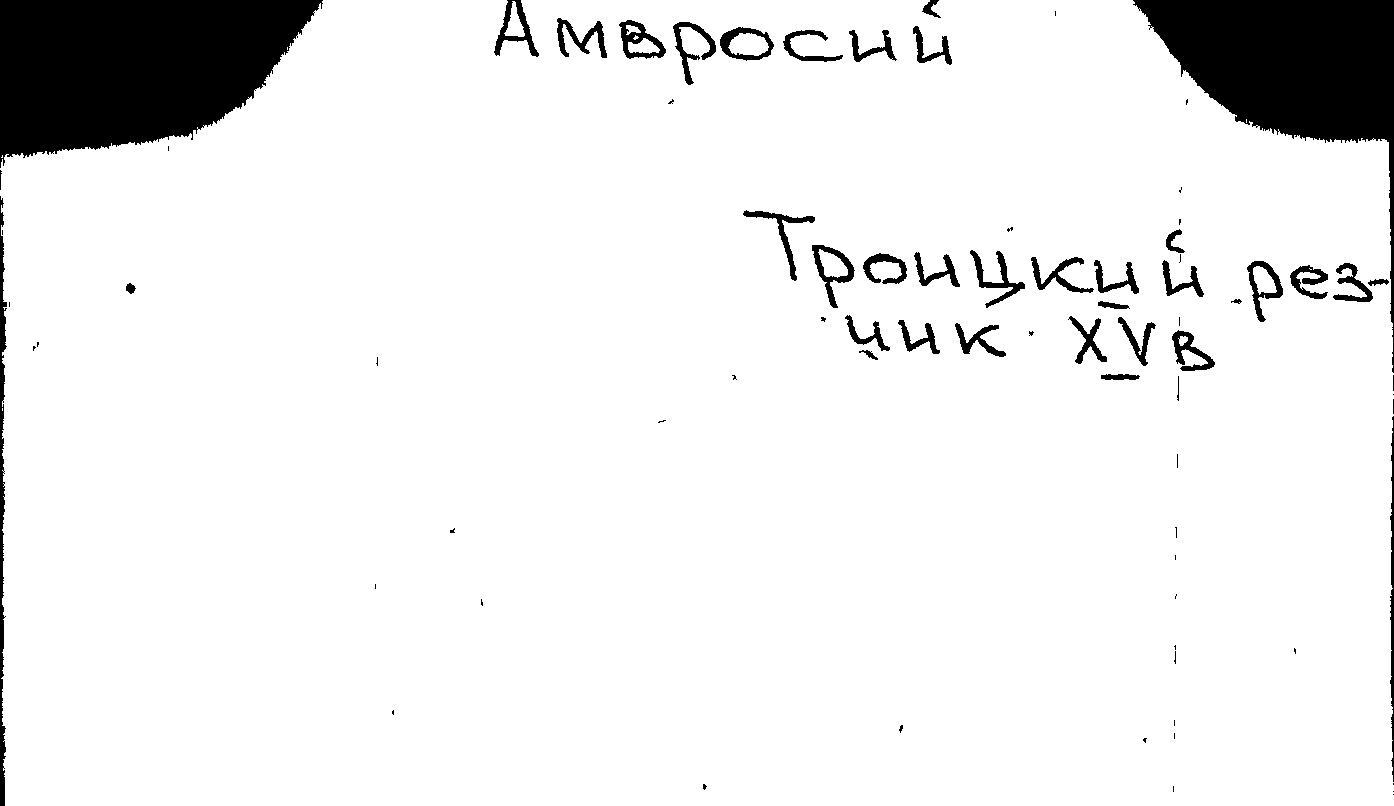 Амвросий
Троицкий рез-
чик XV в